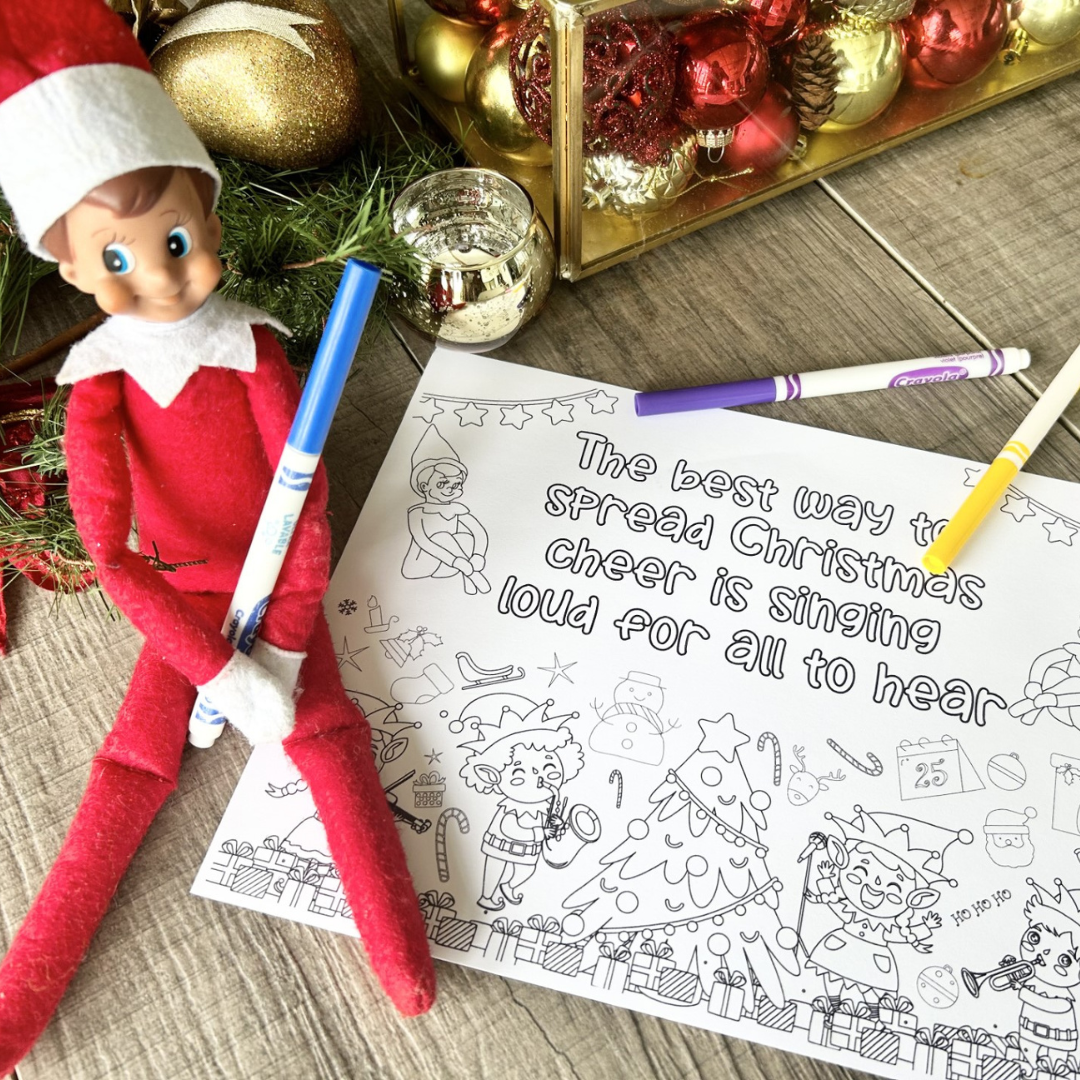 Crayola
LAVABLE
Crayola
The best way to
spread Christmas
cheer is singing
loud for all to hear
25
HO HO HO